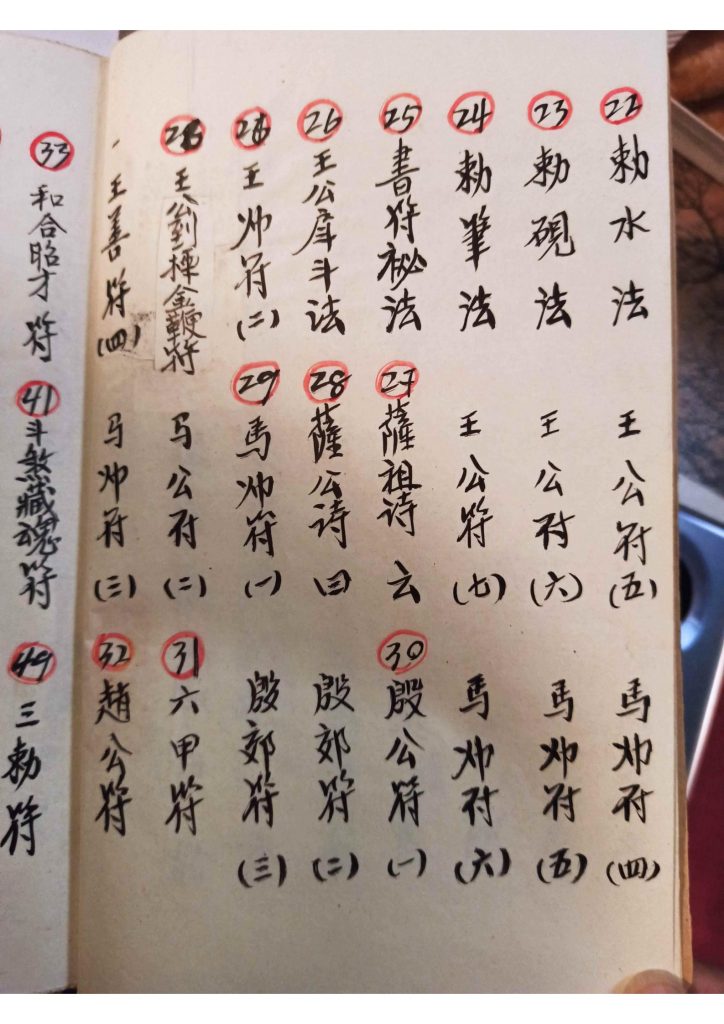 22 勅水法
23 勅硯法
24 勅筆法
25 書符祕法
26 王公庠斗法
王帅符(二)
王公劉
金鞭符
一王善符(四)
王公符(五)
王公符(六)
王公符(七)
27 薩祖诗云
28 薩公诗(三)
29 馬帅符(一)
马公符(二)
马帅符(三)
馬帅符(四)
馬帅符(五)
馬帅符(六)
30 殷公符(一)
殷郊符(二)
殷郊符(三)
31 六甲符
32 趙公符
33 和合昭才符
41 斗煞藏魂符
49 三勅符